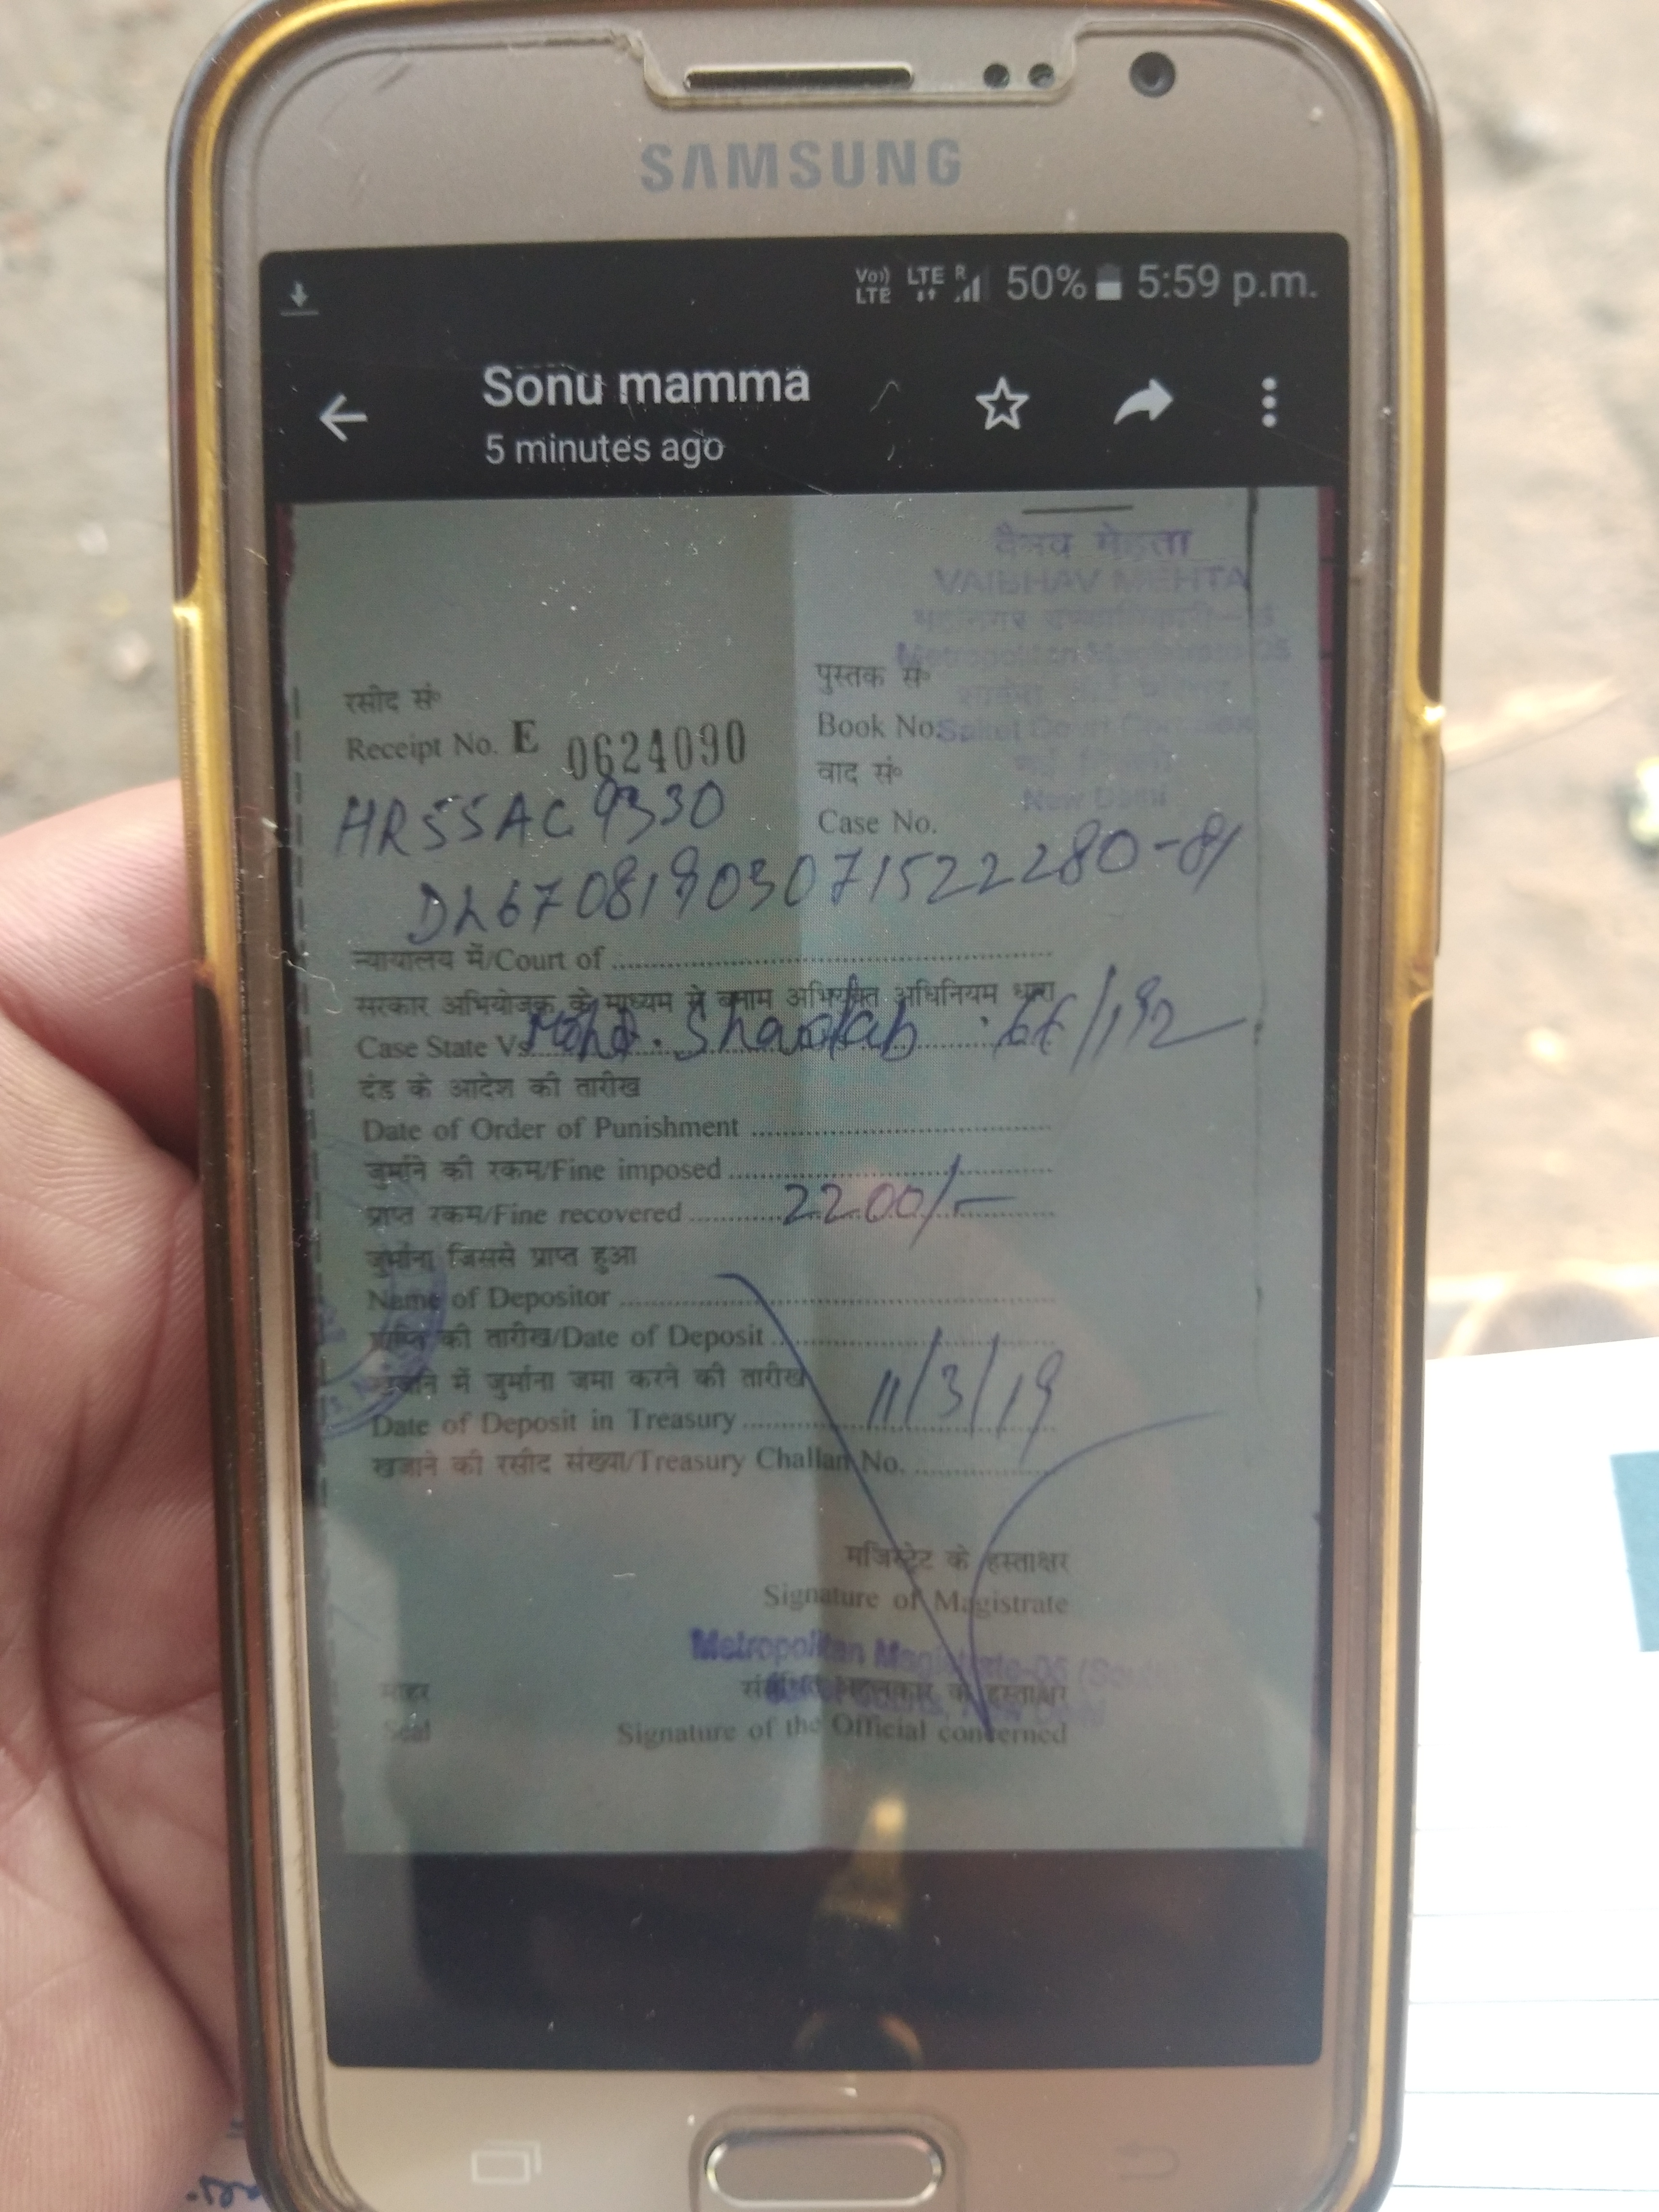 SAMSUNG
Vo)) LTE LTE R 50% 5:59 p.m.
Sonu mamma
5 minutes ago
वैभव मेहता
VAIBHAV MEHTA
Metropolitan Magistrate-05
रसीद सं०
पुस्तक सं०
Receipt No. E 0624090
Book No.
Saket Court Complex
वाद सं०
New Delhi
HR55AC 9330
Case No.
DL67081903071522280-81
न्यायालय में/Court of
सरकार अभियोजक के माध्यम से बनाम अभियुक्त अधिनियम धारा
Case State Vs. Mohd. 66/192
दंड के आदेश की तारीख
Date of Order of Punishment
जुर्माने की रकम/Fine imposed
प्राप्त रकम/Fine recovered 2200/-
जुर्माना जिससे प्राप्त हुआ
Name of Depositor
प्राप्ति की तारीख/Date of Deposit
खजाने में जुर्माना जमा करने की तारीख
Date of Deposit in Treasury 11/3/19
खजाने की रसीद संख्या/Treasury Challan No.
मजिस्ट्रेट के हस्ताक्षर
Signature of Magistrate
Metropolitan Magistrate-05
मोहर
के हस्ताक्षर
Seal
Signature of the Official concerned